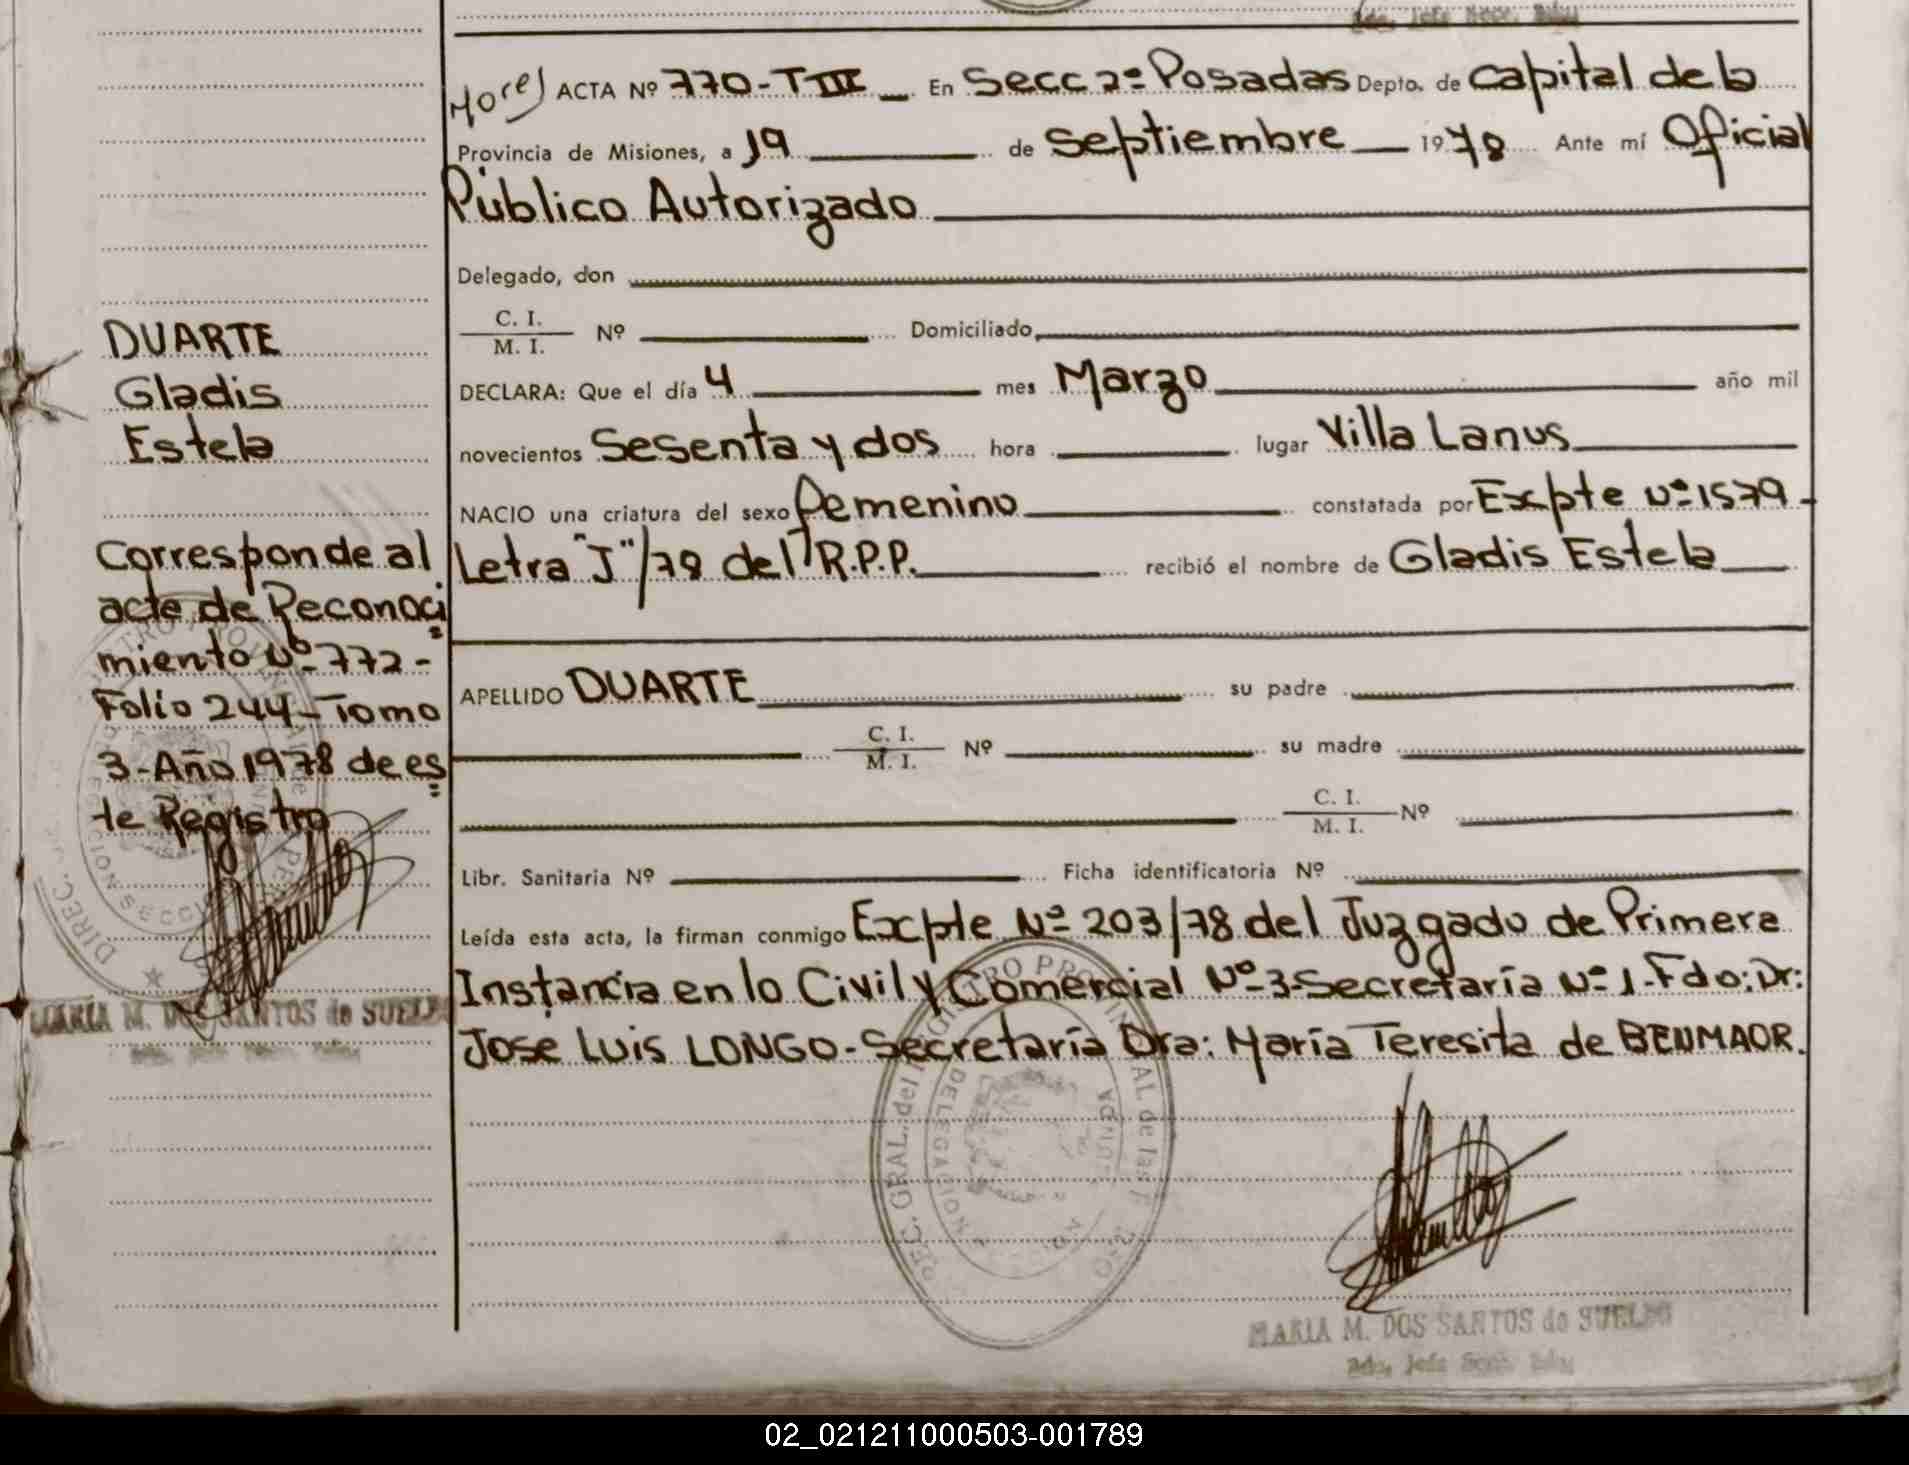 ACTA Nº 770-T III En Secc 2ª Posadas Depto. de Capital de la
Provincia de Misiones, a 19 de Septiembre 1978 Ante mí Oficial
Público Autorizado
Delegado, don
C. I.
M. I. Nº Domiciliado
DECLARA: Que el día 4 mes Marzo año mil
novecientos Sesenta y dos hora lugar Villa Lanus
NACIO una criatura del sexo femenino constatada por Expte Nº 1579-
Letra "J"/78 del R.P.P. recibió el nombre de Gladis Estela
APELLIDO DUARTE su padre
C. I.
M. I. Nº su madre
C. I.
M. I. Nº
Libr. Sanitaria Nº Ficha identificatoria Nº
Leída esta acta, la firman conmigo Expte Nº 203/78 del Juzgado de Primera
Instancia en lo Civil y Comercial Nº 3-Secretaría Nº 1-Fdo: Dr:
Jose Luis LONGO-Secretaría Dra: María Teresita de BENMAOR.
DUARTE
Gladis
Estela
Corresponde al
acte de Reconoci
miento Nº 772-
Folio 244-Tomo
3-Año 1978 de es
te Registro
MARIA M. DOS SANTOS de SUELDO
DIREC. GRAL. del REGISTRO PROVINCIAL de las
DELEGACION
MARIA M. DOS SANTOS de SUELDO
02_021211000503-001789